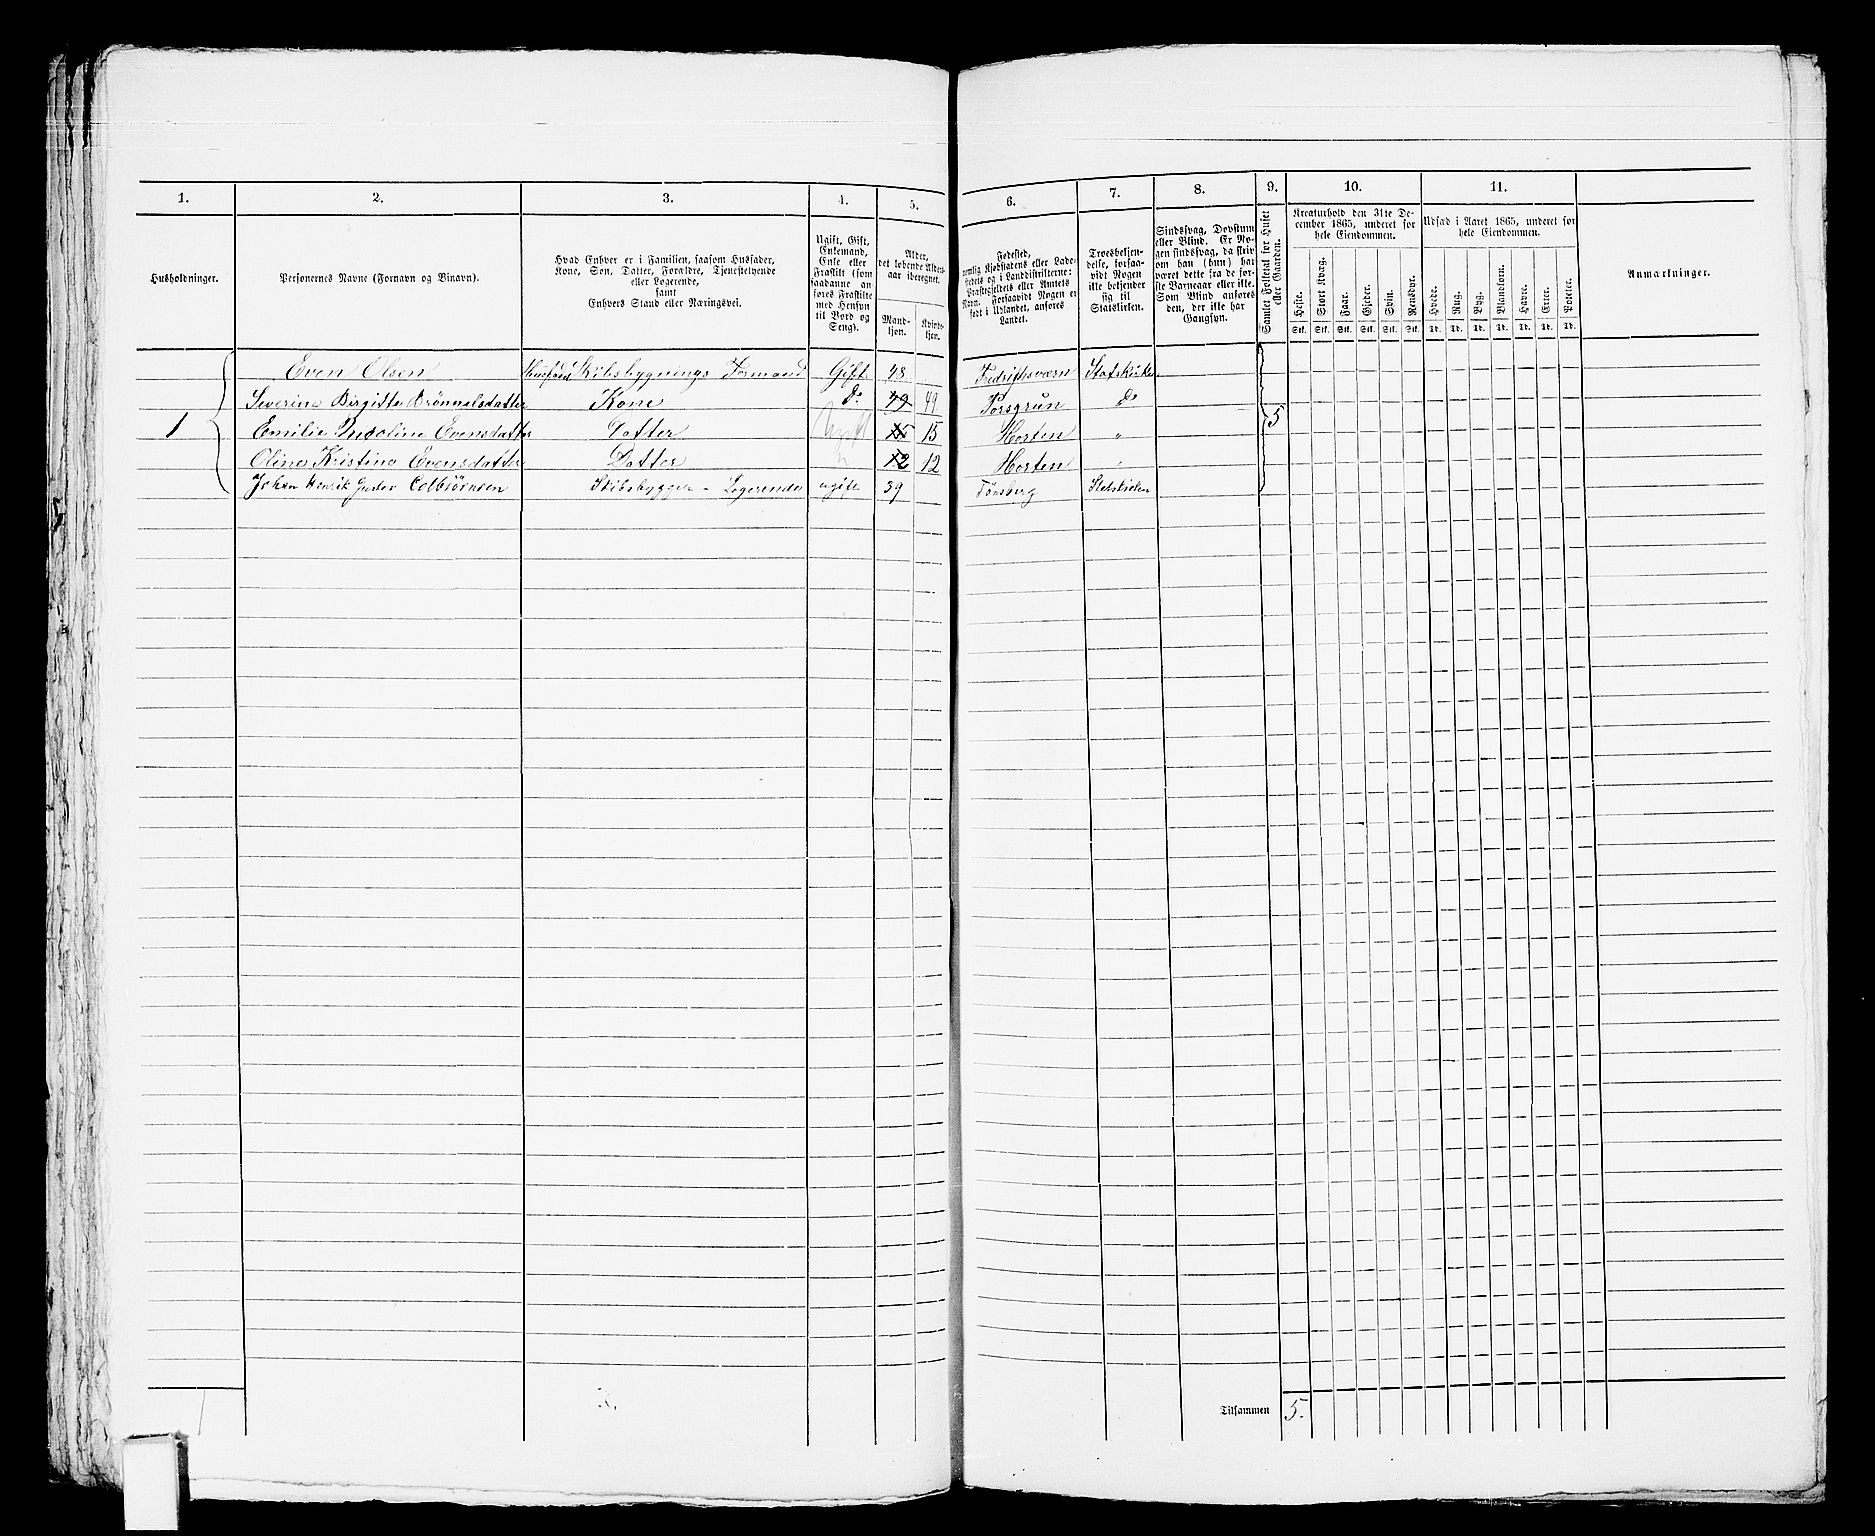 1. 2. 3. 4. 5. 6. 7. 8. 9. 10. 11.
Husholdninger.
Personernes Navne (Fornavn og Binavn).
Hvad Enhver er i Familien, saasom Husfader,
Kone, Søn, Datter, Forældre, Tjenestetyende
eller Logerende,
samt
Enhvers Stand eller Næringsvei.
Ugift, Gift,
Enkemand,
Enke eller
Fraskilt (som
saadanne an-
føres Fraskilte
med Hensyn
til Bord og
Seng).
Alder,
det løbende Alders-
aar iberegnet.
Mand-
kjøn.
Kvinde-
kjøn.
Fødested,
nemlig Kjøbstadens eller Lade-
stedets og i Landdistrikterne:
Præstegjeldets eller Amtets
Navn. Forsaavidt Nogen er
født i Udlandet, anføres
Landet.
Troesbekjen-
delse, forsaa-
vidt Nogen
ikke bekjender
sig til
Statskirken.
Sindssvag, Døvstum
eller Blind. Er No-
gen sindssvag, da skriv
om han (hun) har
været dette fra de før-
ste Barneaar eller ikke.
Som Blind anføres
den, der ikke har
Gangsyn.
Samlet Folketal for Huset
eller Gaarden.
Kreaturhold den 31te De-
cember 1865, underet for
hele Eiendommen.
Heste. Stort Kvæg. Faar. Gjeder. Svin. Rensdyr.
Stk. Stk. Stk. Stk. Stk. Stk.
Udsæd i Aaret 1865, underet for
hele Eiendommen.
Hvede. Rug. Byg. Blandkorn. Havre. Erter. Poteter.
Td. Td. Td. Td. Td. Td. Td.
Anmærkninger.
Even Olsen Husfad Skibsbygnings Formand Gift 48 Fredriksværn Statskirke
Severine Birgitte Brönnelsdatter Kone do 49 49 Porsgrun do
1 Emilie Nicoline Evensdatter Datter Ugift 15 15 Horten " 5
Oline Kristine Evensdatter Datter " 12 12 Horten "
Johan Henrik Gustav Colbiörnsen Skibsbygger - Logerende ugift 39 Tønsberg Statskirken
1
Tilsammen 5.